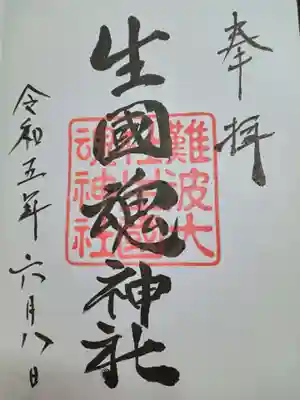 奉拝
生國魂神社
難波大社生國魂神社
令和五年六月八日